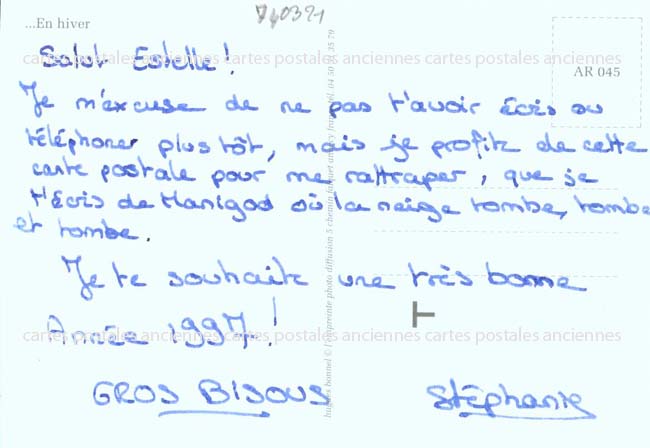 740321
...En hiver
AR 045
cartes postales anciennes cartes postales anciennes cartes postales anciennes
Salut Estelle!
Je m'excuse de ne pas t'avoir écris ou
téléphoner plus tôt, mais je profite de cette
carte postale pour me rattraper, que je
t'écris de Manigod où la neige tombe, tombe
et tombe.
Je te souhaite une très bonne
Année 1997!
cartes postales anciennes cartes postales anciennes cartes postales anciennes
GROS BISOUS
Stéphanie
hugues bonnel © l'empreinte photo diffusion 5 chemin